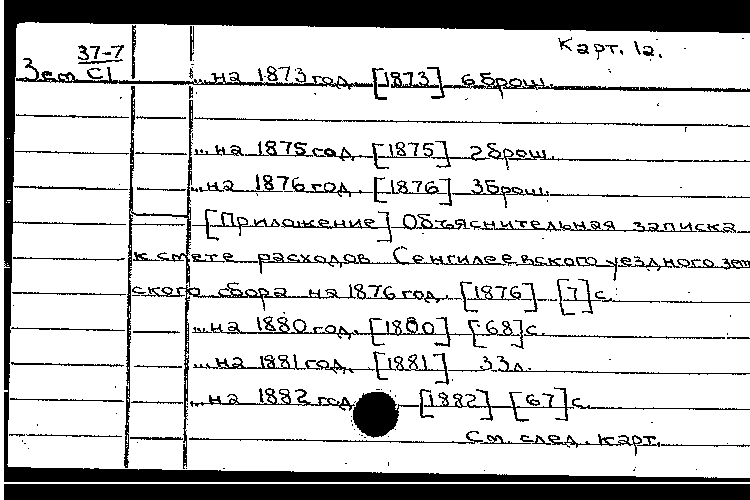 Карт. 1а.
37-7
Зем С1
...на 1873 год. [1873] 6 брош.
...на 1875 год. [1875] 2 брош.
...на 1876 год. [1876] 3 брош.
[Приложение] Объяснительная записка
к смете расходов Сенгилеевского уездного зем
ского сбора на 1876 год. [1876] [7] с.
...на 1880 год. [1880] [68] с.
...на 1881 год. [1881] 33 л.
...на 1882 год [1882] [67] с.
См. след. карт.